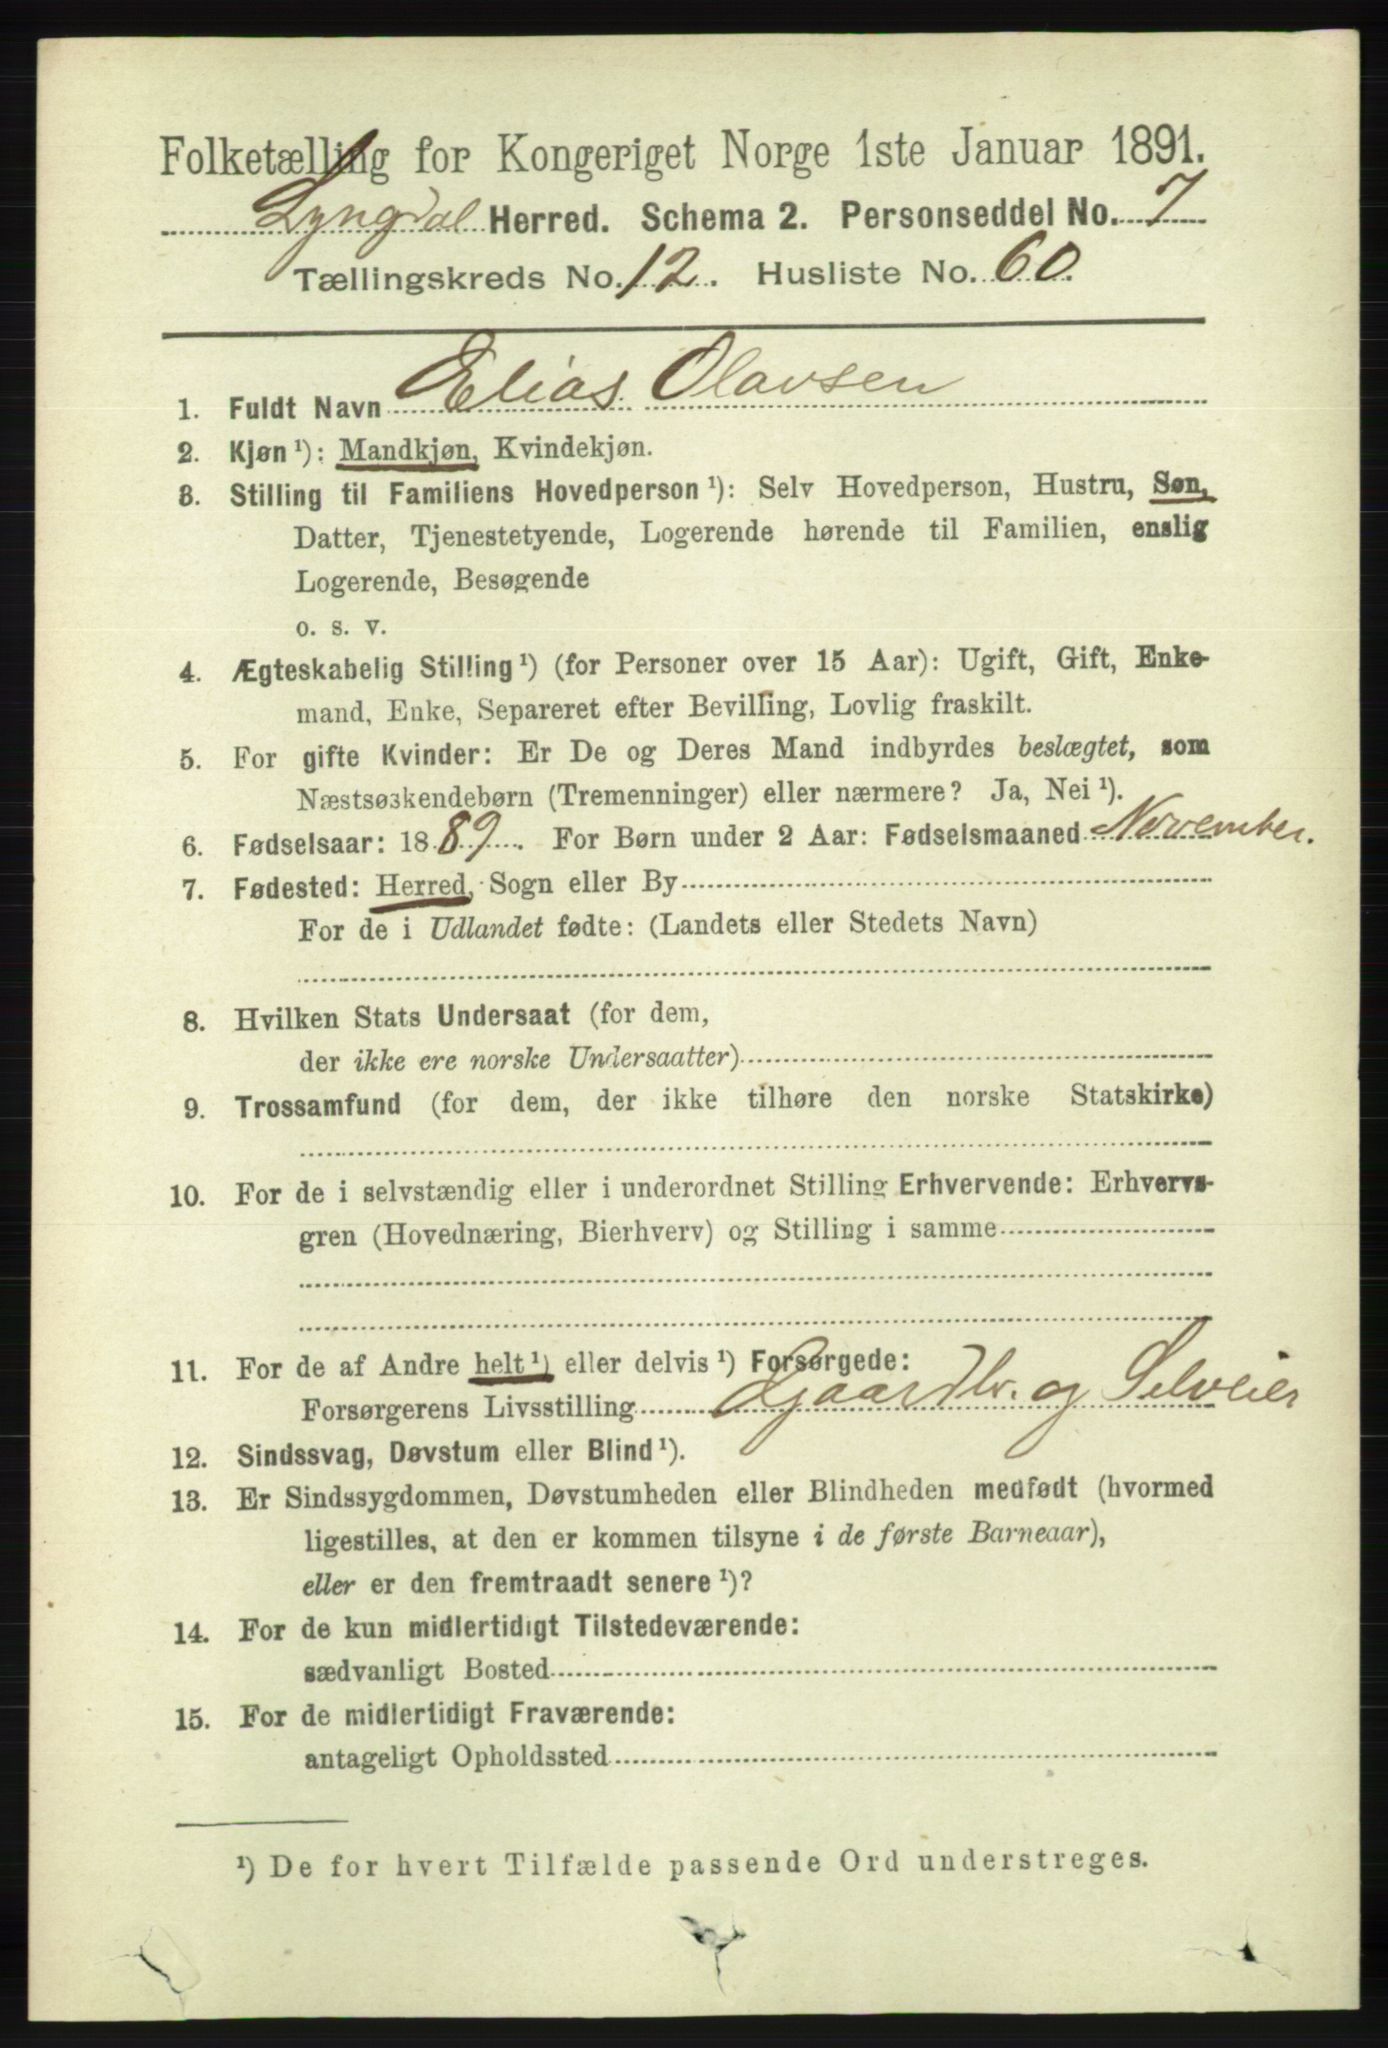 Folketælling for Kongeriget Norge 1ste Januar 1891.
Lyngdal Herred. Schema 2. Personseddel No. 7
Tællingskreds No. 12. Husliste No. 60.
1. Fuldt Navn Elias Olavsen
2. Kjøn ¹): Mandkjøn, Kvindekjøn.
3. Stilling til Familiens Hovedperson ¹): Selv Hovedperson, Hustru, Søn,
Datter, Tjenestetyende, Logerende hørende til Familien, enslig
Logerende, Besøgende
o. s. v.
4. Ægteskabelig Stilling ¹) (for Personer over 15 Aar): Ugift, Gift, Enke-
mand, Enke, Separeret efter Bevilling, Lovlig fraskilt.
5. For gifte Kvinder: Er De og Deres Mand indbyrdes beslægtet, som
Næstsøskendebørn (Tremenninger) eller nærmere? Ja, Nei ¹).
6. Fødselsaar: 1889. For Børn under 2 Aar: Fødselsmaaned November.
7. Fødested: Herred, Sogn eller By
For de i Udlandet fødte: (Landets eller Stedets Navn)
8. Hvilken Stats Undersaat (for dem,
der ikke ere norske Undersaatter)
9. Trossamfund (for dem, der ikke tilhøre den norske Statskirke)
10. For de i selvstændig eller i underordnet Stilling Erhvervende: Erhvervs-
gren (Hovednæring, Bierhverv) og Stilling i samme
11. For de af Andre helt ¹) eller delvis ¹) Forsørgede:
Forsørgerens Livsstilling Gaardbr. og Selveier
12. Sindssvag, Døvstum eller Blind ¹).
13. Er Sindssygdommen, Døvstumheden eller Blindheden medfødt (hvormed
ligestilles, at den er kommen tilsyne i de første Barneaar),
eller er den fremtraadt senere ¹)?
14. For de kun midlertidigt Tilstedeværende:
sædvanligt Bosted
15. For de midlertidigt Fraværende:
antageligt Opholdssted
¹) De for hvert Tilfælde passende Ord understreges.